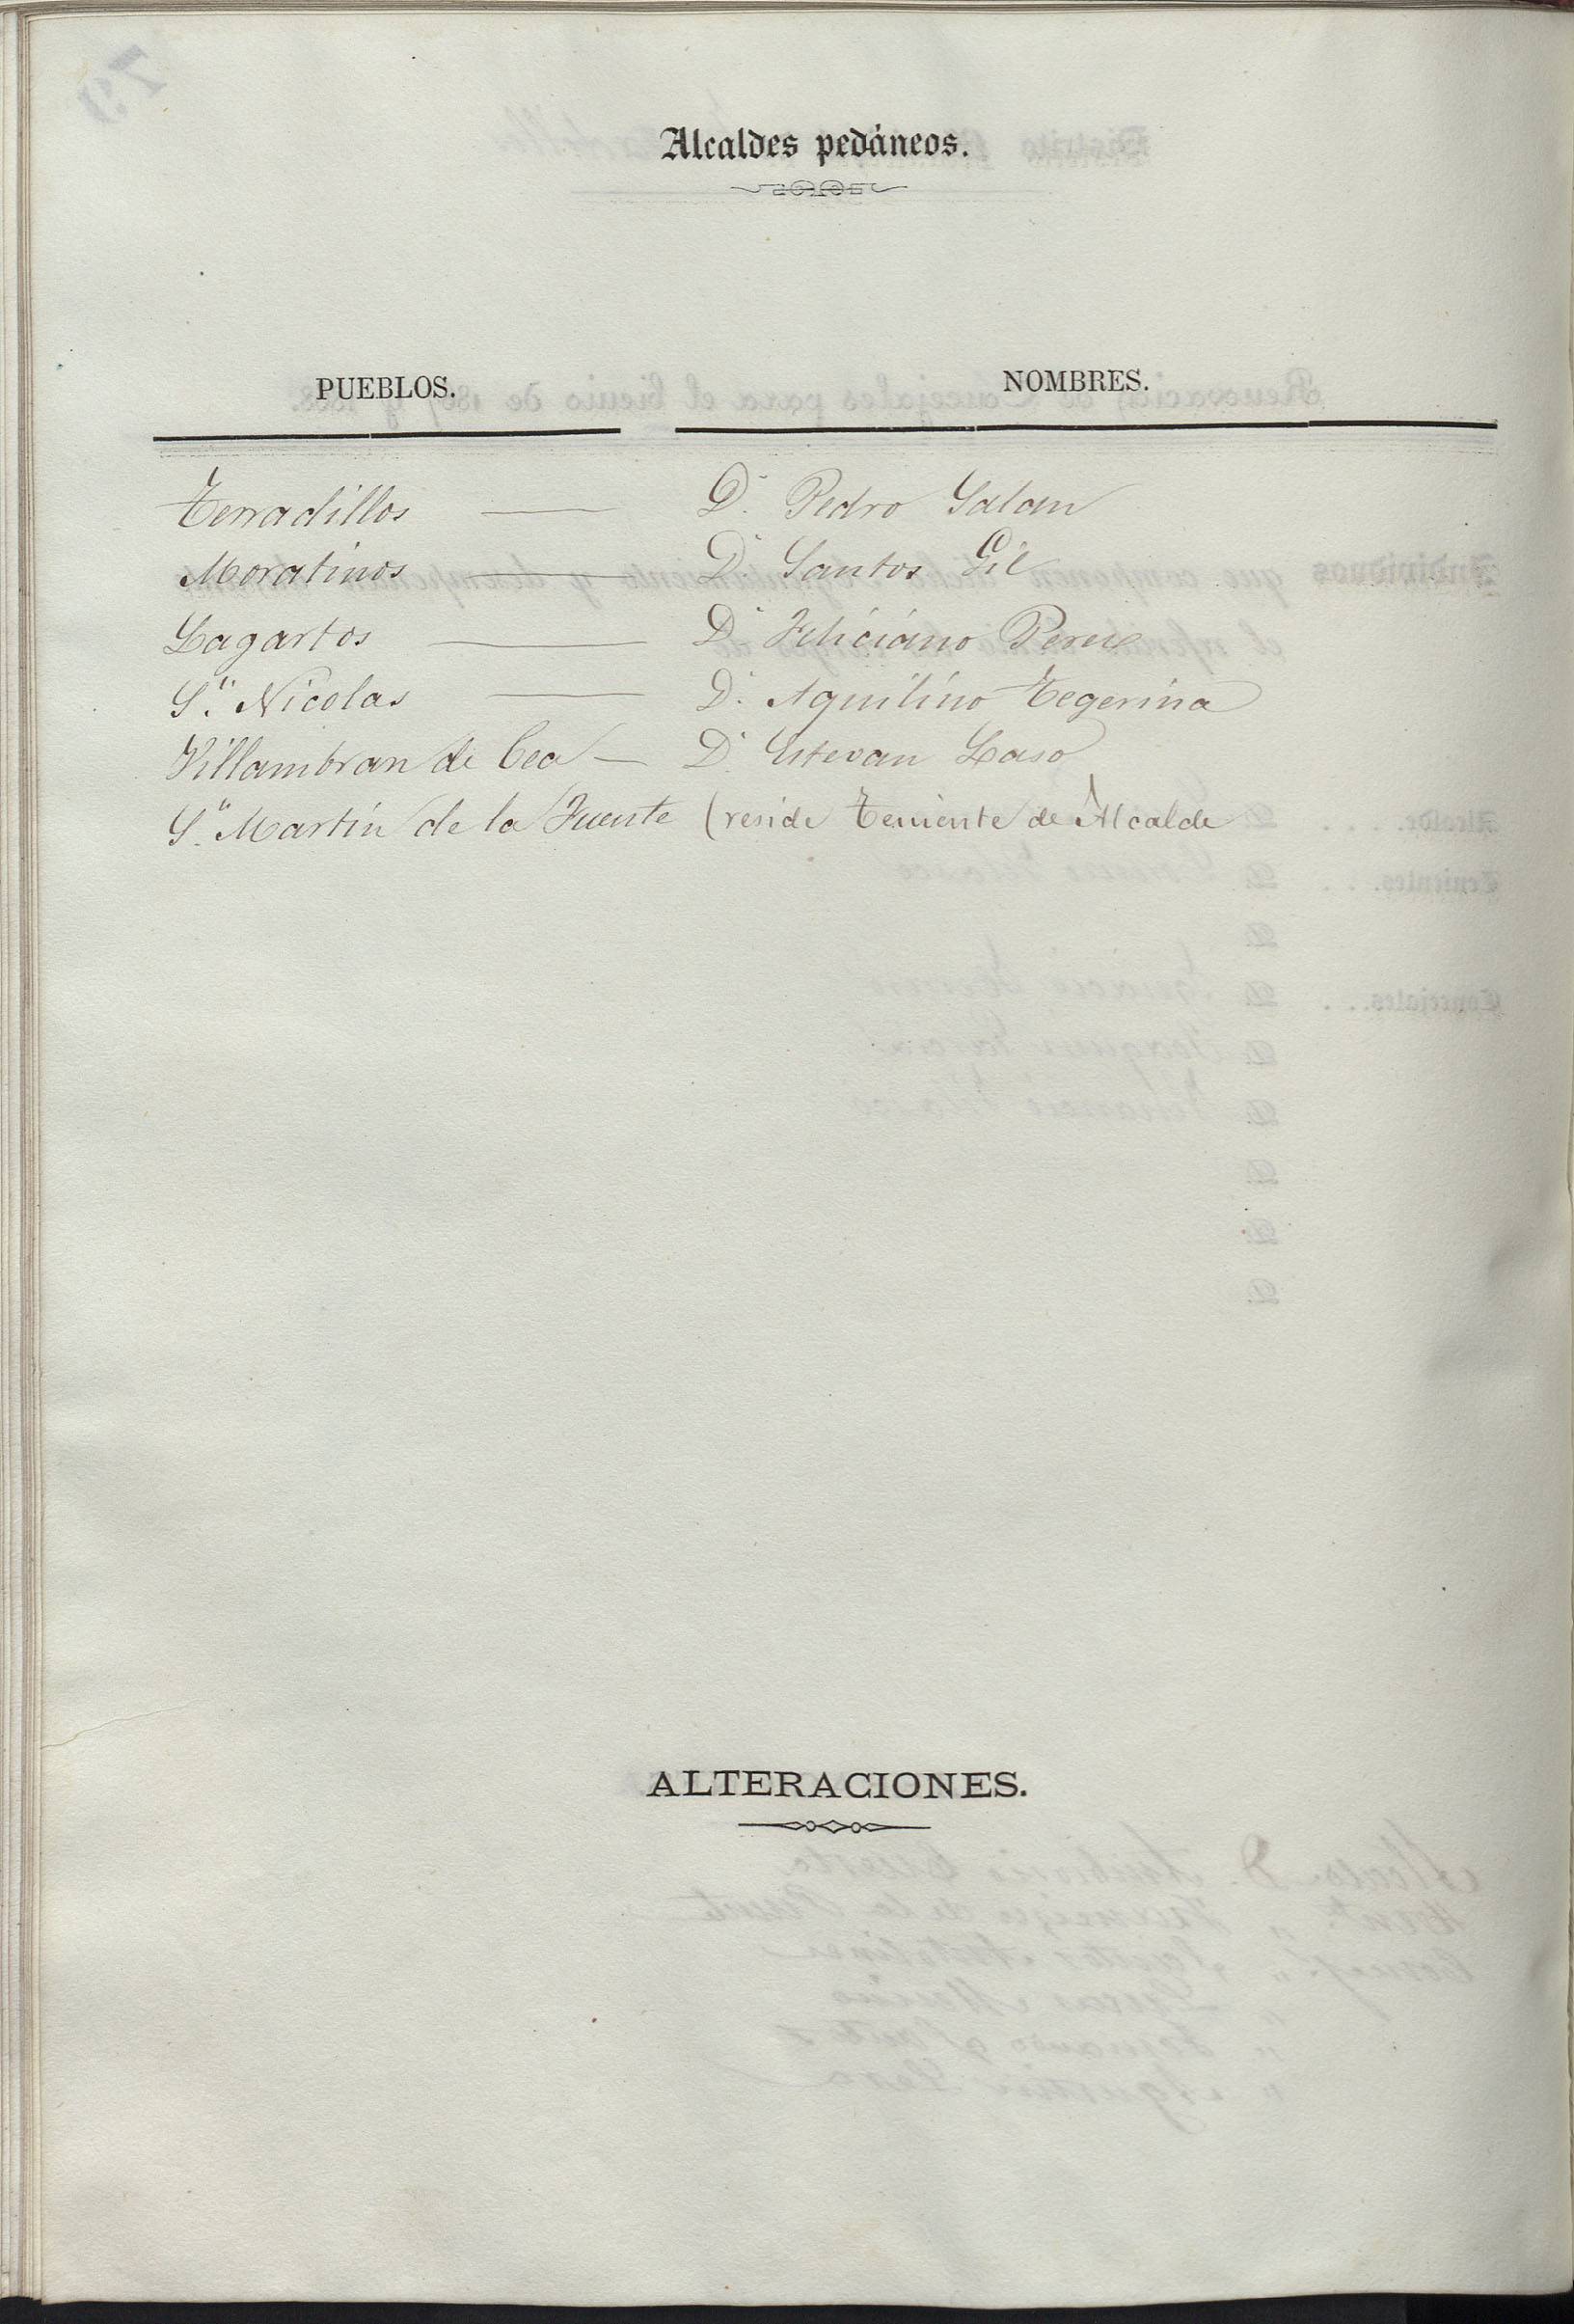 Alcaldes pedáneos.
PUEBLOS. NOMBRES.
Terradillos — D. Pedro Salan
Moratinos — D. Santos Gil
Lagartos — D. Feliciano Perez
S.n Nicolas — D. Aquilino Tegerina
Villambran de Cea — D. Estevan Laso
S.n Martin de la Fuente (reside Teniente de Alcalde
ALTERACIONES.